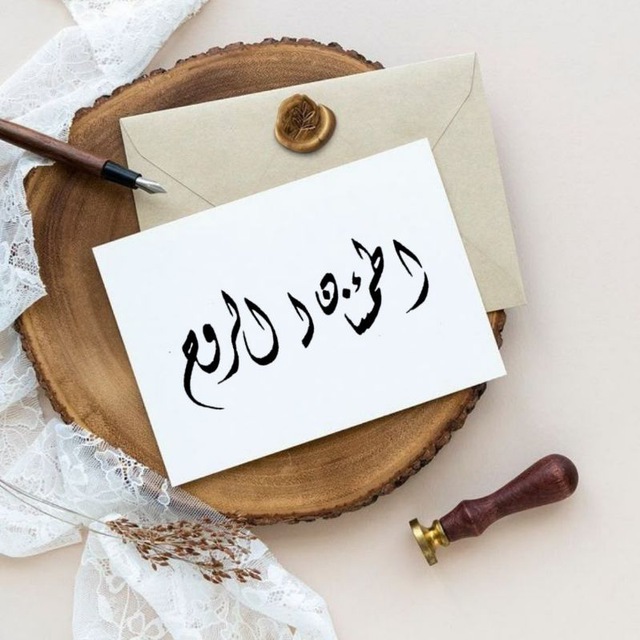 اطمئنان الروح